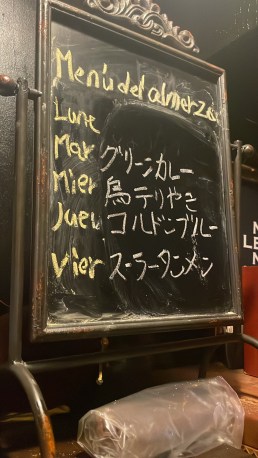 Menú del almerzo
Lune
Mar グリーンカレー
Mier 鳥テリやき
Juev コルドンブルー
Vier スーラータンメン
N
LE
N